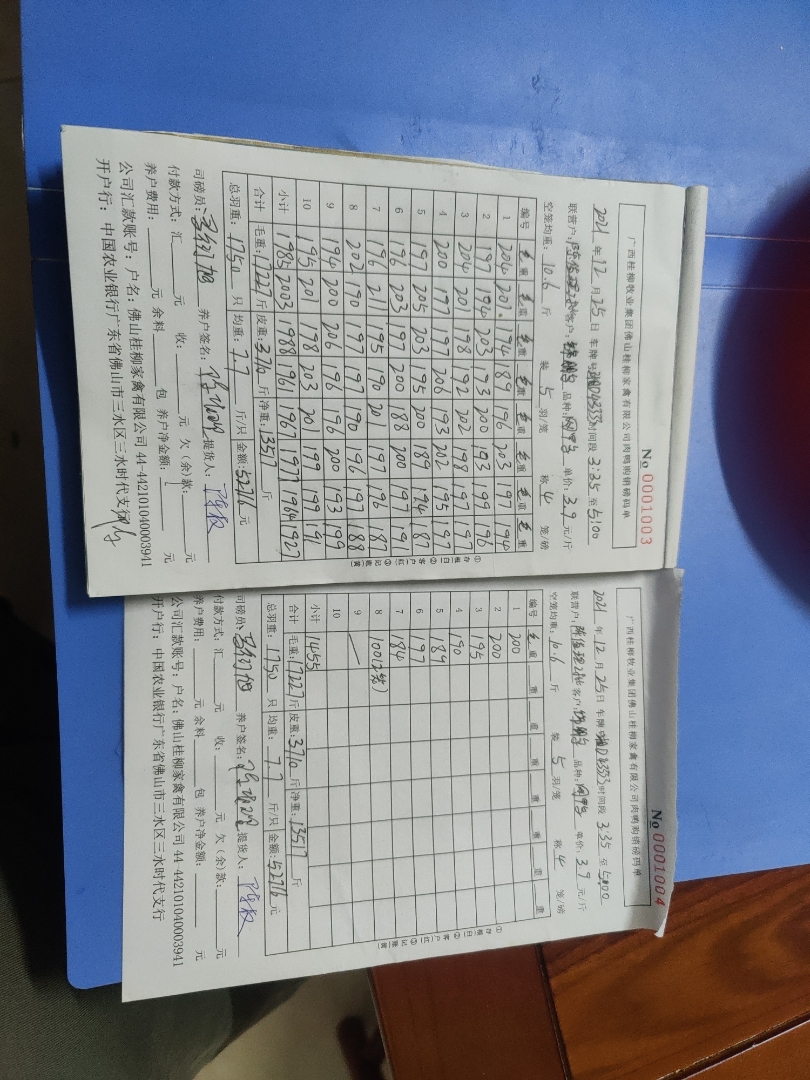 No 0001003
广西桂柳牧业集团佛山桂柳家禽有限公司肉鸭购销磅码单
2021 年 12 月 25 日 车牌号 时间段 3:35 至 5:00
联营户: 客户: 品种: 单价: 3.9 元/斤
空笼均重: 10.6 斤 装 5 羽/笼 称 4 笼/磅
编号 毛重 毛重 毛重 毛重 毛重 毛重 毛重 毛重
1 204 201 194 189 196 203 197 194
2 197 194 203 193 200 193 199 196
3 204 201 198 192 202 198 197 197
4 200 197 197 206 193 202 195 197
5 197 205 203 195 200 189 194 187
6 196 203 197 200 188 200 197 191
7 196 211 195 190 201 197 196 187
8 202 190 197 197 190 196 197 188
9 194 200 206 196 196 200 193 199
10 195 201 198 203 201 199 199 191
小计 1985 2003 1988 1961 1967 1977 1964 1927
合计 毛重: 17227 斤 皮重: 3710 斤 净重: 13517 斤
总羽重: 1750 只 均重: 7.7 斤/只 金额: 52716 元
司磅员: 养户签名: 提货人:
付款方式: 汇 元 收: 元 欠(余)款: 元
养户费用: 元 余料 包 养户净金额: 元
公司汇款账号: 户名: 佛山桂柳家禽有限公司 44-442101040003941
开户行: 中国农业银行广东省佛山市三水区三水时代支行
①存根(白) ②客户(红) ③记账(黄)
No 0001004
广西桂柳牧业集团佛山桂柳家禽有限公司肉鸭购销磅码单
2021 年 12 月 25 日 车牌号 时间段 3:35 至 5:00
联营户: 客户: 品种: 单价: 3.9 元/斤
空笼均重: 10.6 斤 装 5 羽/笼 称 4 笼/磅
编号 毛重 重 重 重 重 重 重 重
1 200
2 200
3 195
4 190
5 189
6 197
7 184
8 100(2笼)
9
10
小计 1455
合计 毛重: 17227 斤 皮重: 3710 斤 净重: 13517 斤
总羽重: 1750 只 均重: 7.7 斤/只 金额: 52716 元
司磅员: 养户签名: 提货人:
付款方式: 汇 元 收: 元 欠(余)款: 元
养户费用: 元 余料 包 养户净金额: 元
公司汇款账号: 户名: 佛山桂柳家禽有限公司 44-442101040003941
开户行: 中国农业银行广东省佛山市三水区三水时代支行
①存根(白) ②客户(红) ③记账(黄)